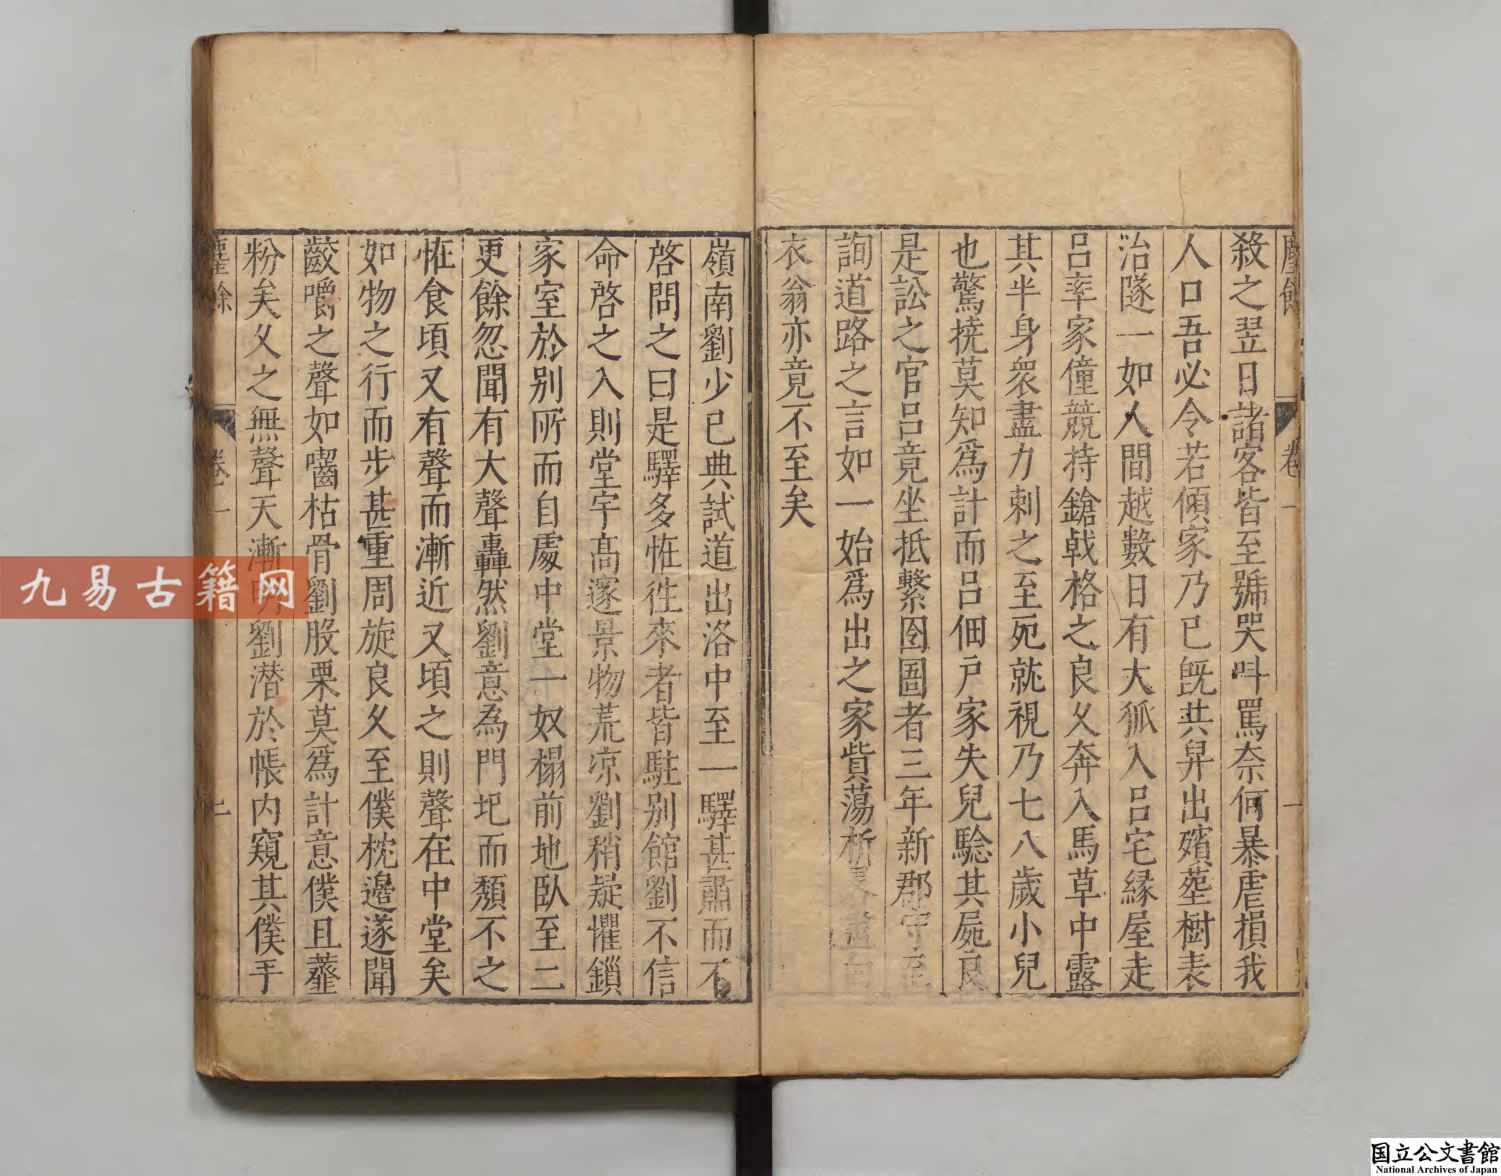 麈餘
卷一
殺之翌日諸客皆至號哭呌罵奈何暴虐損我
人口吾必令若傾家乃已旣共舁出殯塟樹表
治隧一如人間越數日有大狐入吕宅縁屋走
吕率家僮競持鎗戟格之良久奔入馬草中露
其半身衆盡力刺之至死就視乃七八歲小兒
也驚撓莫知爲計而吕佃戸家失兒騐其屍良
是訟之官吕竟坐抵繫囹圄者三年新郡守至
詢道路之言如一始爲出之家貲蕩析
衣翁亦竟不至矣
嶺南劉少已典試道出洛中至一驛甚肅而不
啓問之曰是驛多恠徃來者皆駐别館劉不信
命啓之入則堂宇高邃景物荒凉劉稍疑懼鎖
家室於别所而自處中堂一奴榻前地臥至二
更餘忽聞有大聲轟然劉意為門圯而頽不之
恠食頃又有聲而漸近又頃之則聲在中堂矣
如物之行而步甚重周旋良久至僕枕邉遂聞
齩嚼之聲如囓枯骨劉股栗莫爲計意僕且虀
粉矣久之無聲天漸明劉潜於帳内窺其僕手
麈餘
卷一
九易古籍网
国立公文書館
National Archives of Japan